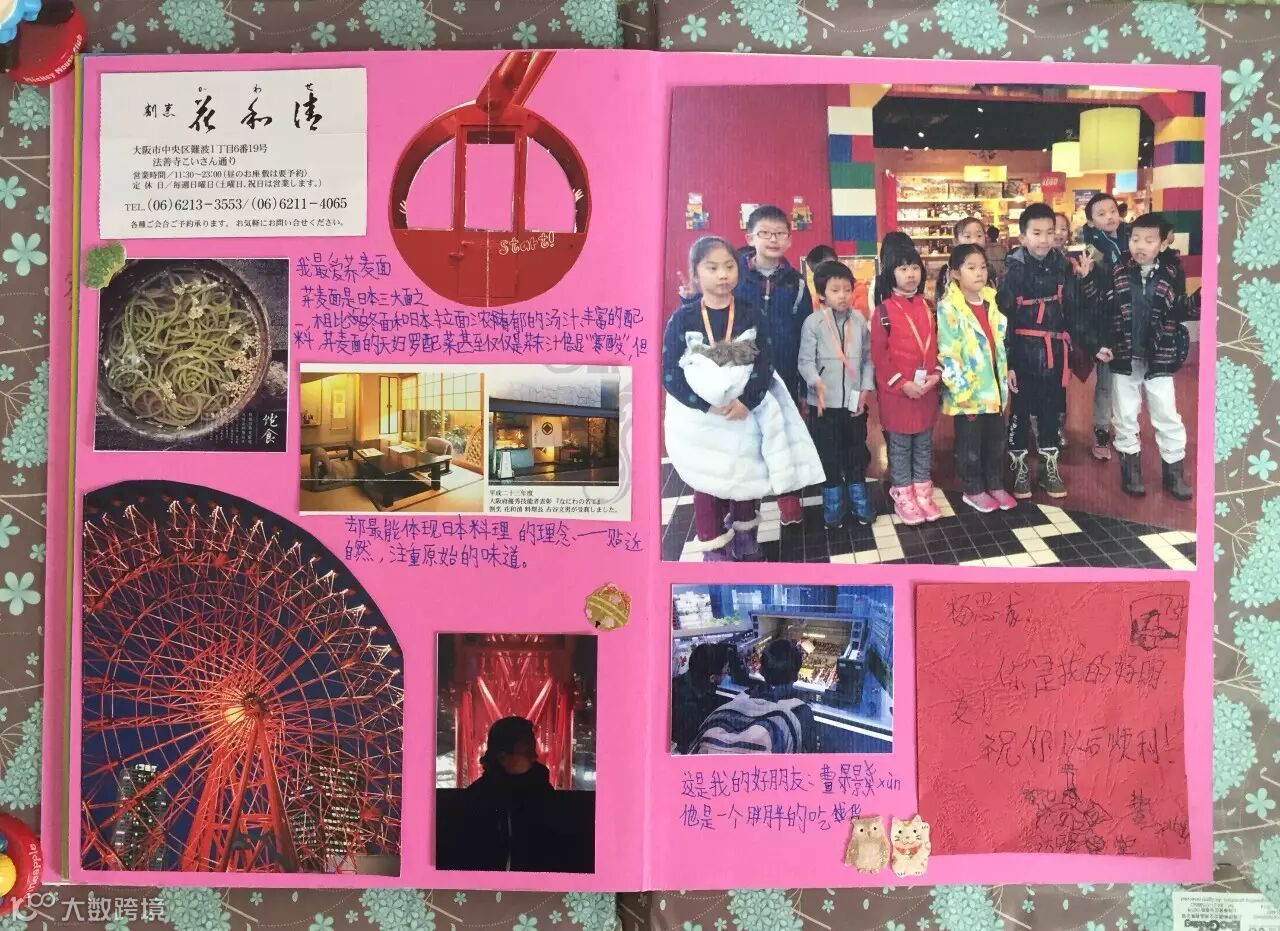 Mickey Mouse Club
か わ せ
割烹 花 和 清
大阪市中央区難波1丁目6番19号
法善寺こいさん通り
営業時間/11:30~23:00(昼のお座敷は要予約)
定 休 日/毎週日曜日(土曜日、祝日は営業します。)
TEL.(06)6213-3553/(06)6211-4065
各種ご会合ご予約承ります。 お気軽にお問い合せください。
Start!
我最爱荞麦面
荞麦面是日本三大面之
一,相比乌冬面和日本拉面浓郁的汤汁、丰富的配
料,荞麦面的天妇罗配菜甚至仅仅是芥末汁倍是“寒酸”,但
饱食
平成二十三年度
大阪府優秀技能者表彰 『なにわの名工』
割烹 花和清 料理長 古谷文男が受賞しました。
却最能体现日本料理 的理念、——贴近
自然,注重原始的味道。
LEGO
这是我的好朋友:董景 xùn
他是一个胖胖的吃货
杨思
你是我的好朋
友
祝你以后顺利!
大数跨境